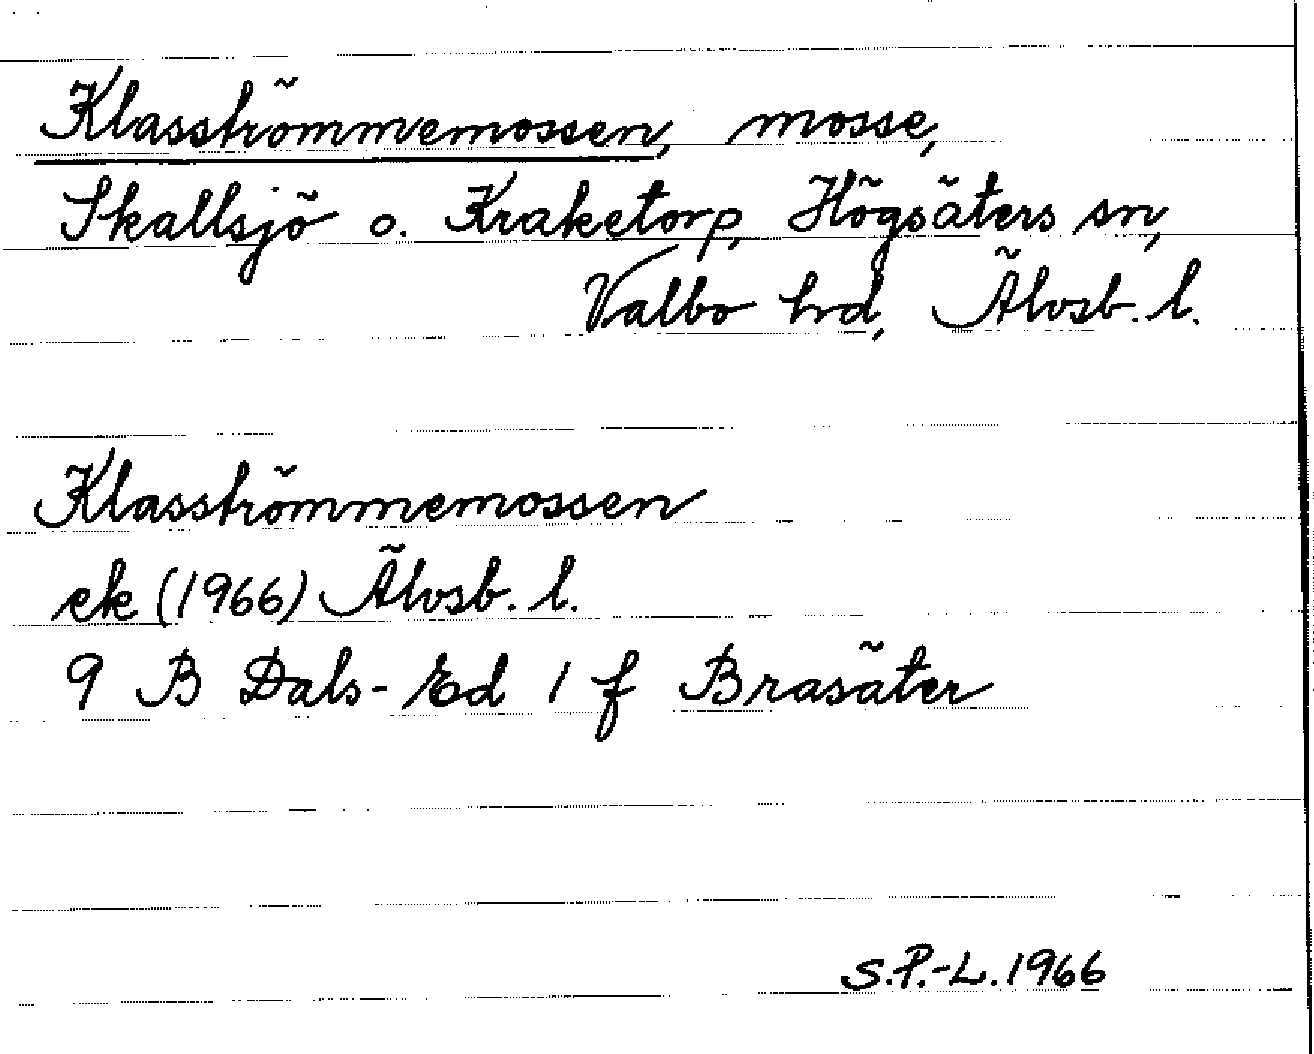 Klasströmmemossen, mosse,
Skallsjö o. Kraketorp, Högsäters sn,
Valbo hd, Älvsb. l.
Klasströmmemossen
ek (1966) Älvsb. l.
9 B Dals-Ed 1 f Brasäter
S.P.-L. 1966